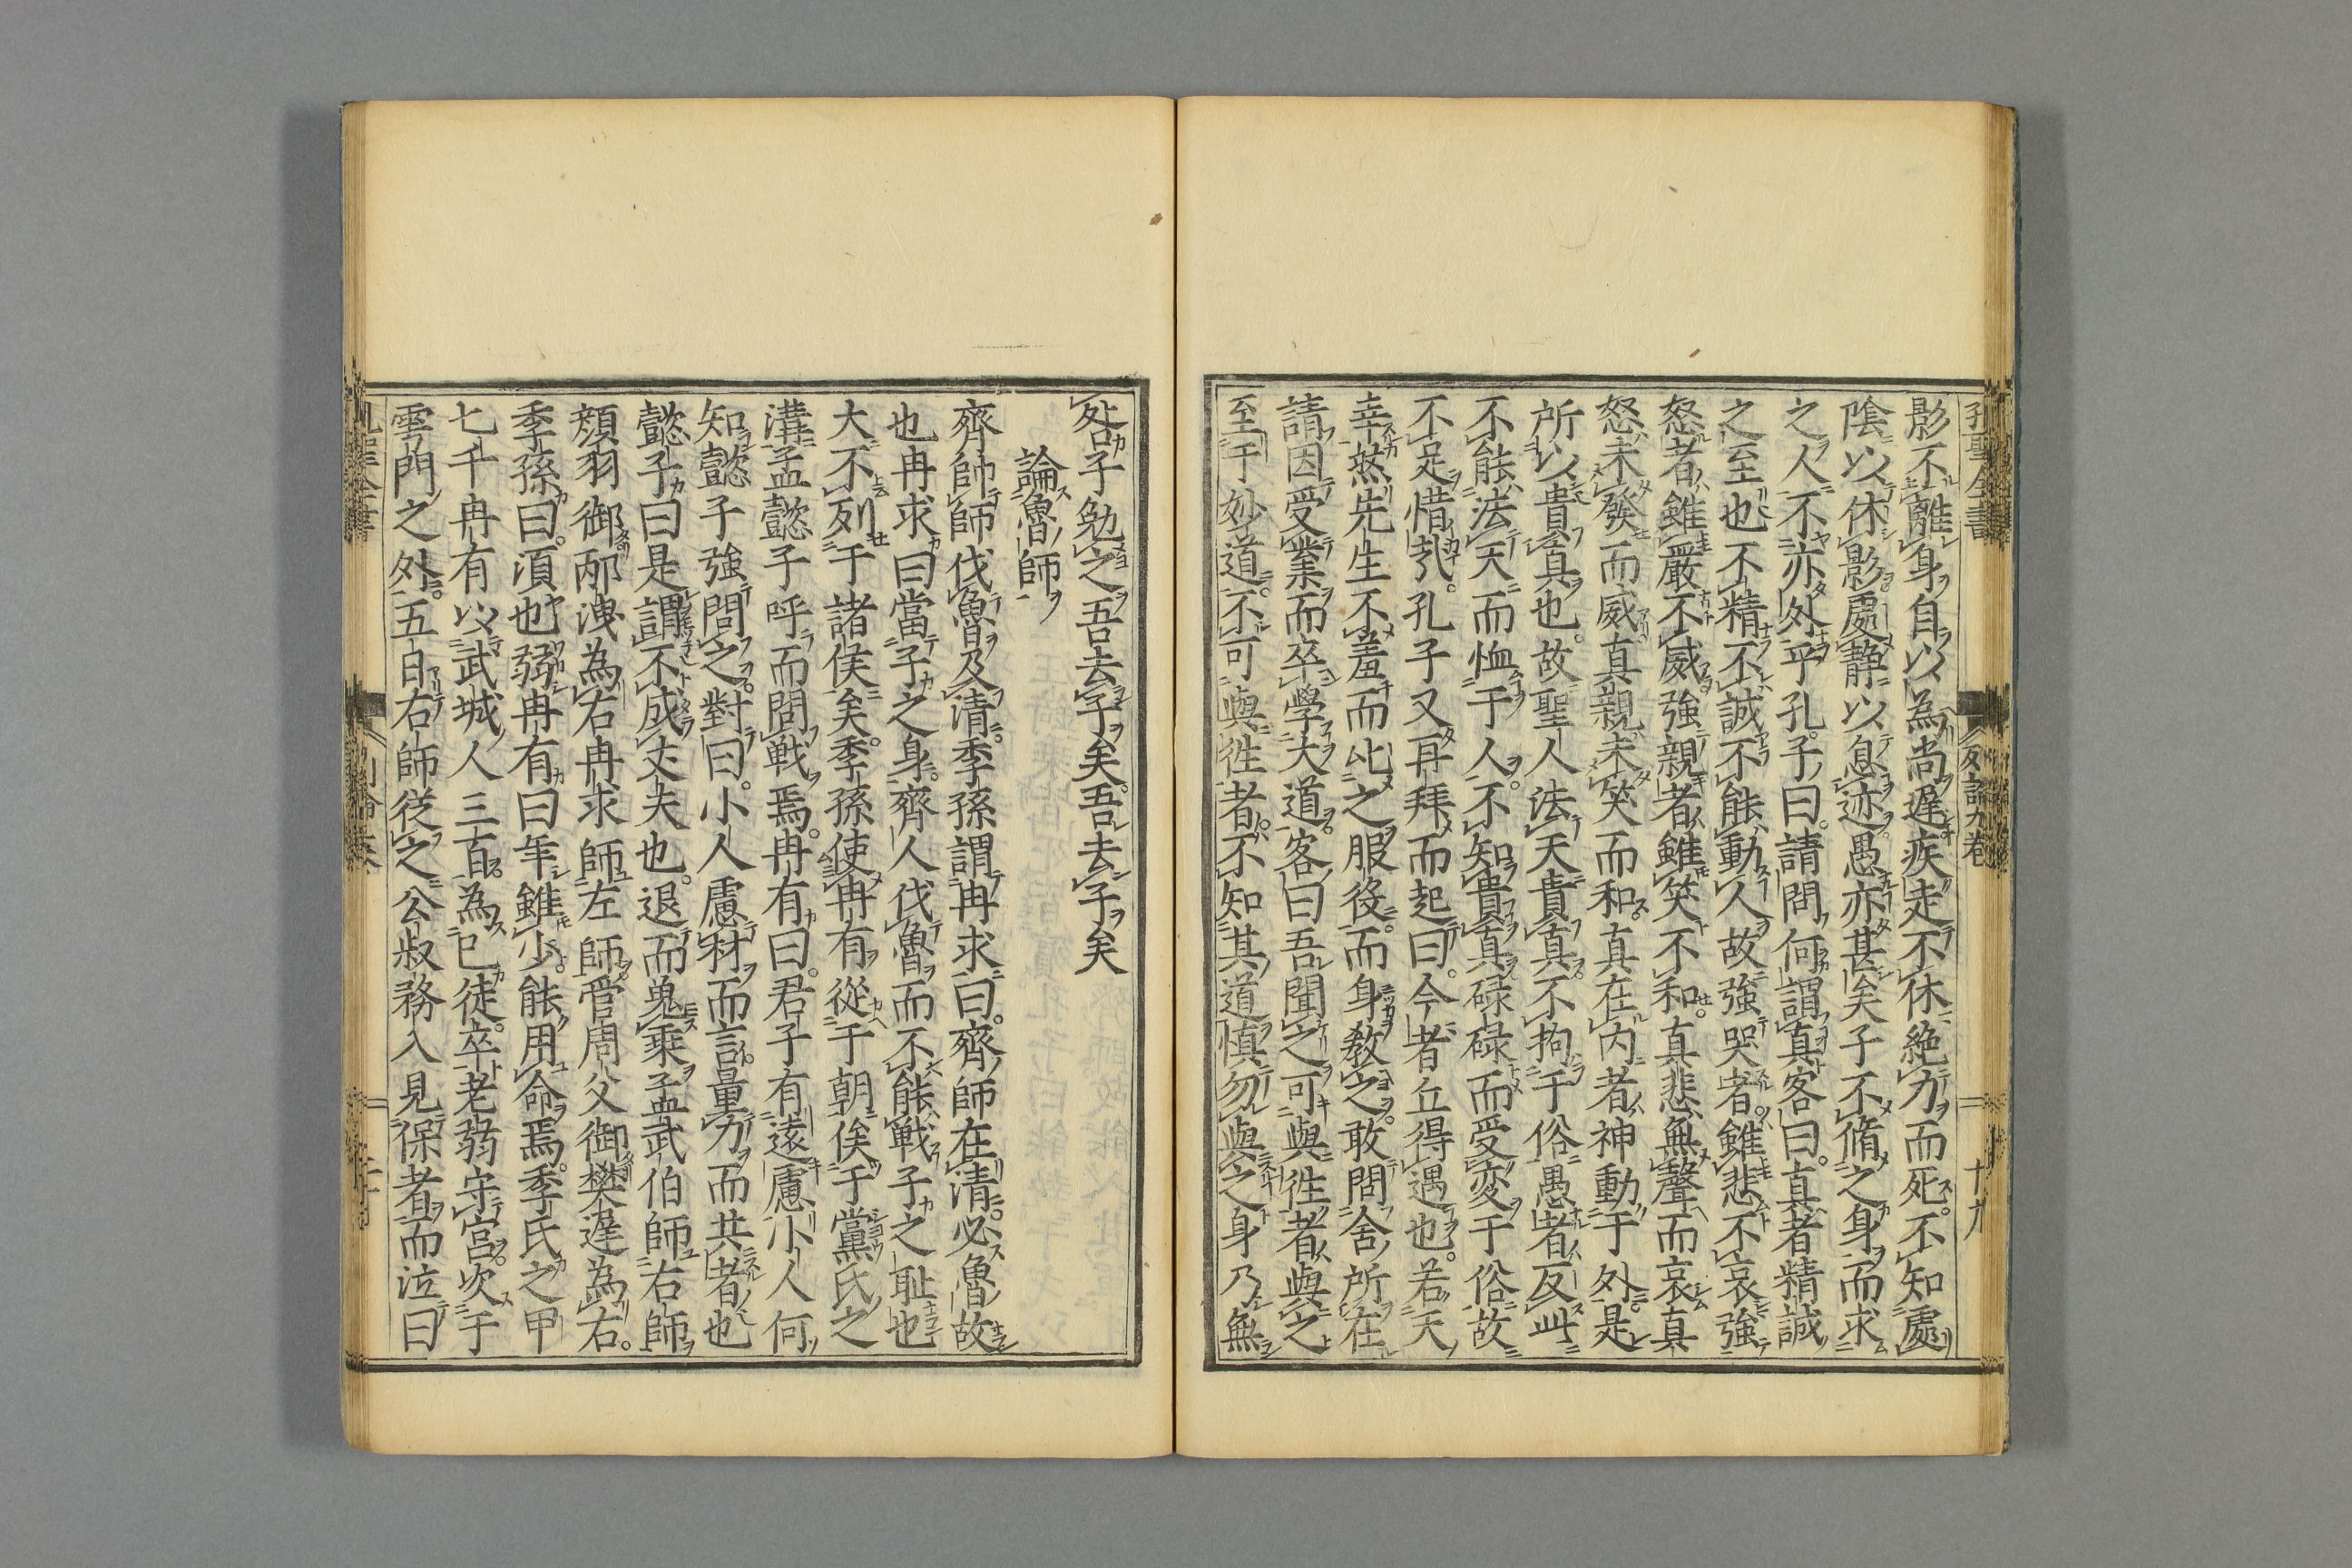 孔聖全書
九卷
十九
影不離身自以為尚遲疾走不休絶力而死不知處
陰以休影處靜以息迹愚亦甚矣子不脩之身而求
之人不亦外乎孔子曰請問何謂真客曰真者精誠
之至也不精不誠不能動人故強哭者雖悲不哀強
怒者雖嚴不威強親者雖笑不和真悲無聲而哀真
怒未發而威真親未笑而和真在内者神動于外是
所以貴真也故聖人法天貴真不拘于俗愚者反此
不能法天而恤于人不知貴真碌碌而受変于俗故
不足惜哉孔子又再拜而起曰今者丘得遇也若天
幸然先生不羞而比之服役而身教之敢問舍所在
請因受業而卒學大道客曰吾聞之可與徃者與之
至于妙道不可與徃者不知其道慎勿與之身乃無
咎子勉之吾去子矣吾去子矣
論魯師
齊師師伐魯及清季孫謂冉求曰齊師在清必魯故
也冉求曰當子之身齊人伐魯而不能戰子之耻也
大不列于諸侯矣季孫使冉有從于朝俟于黨氏之
溝孟懿子呼而問戰焉冉有曰君子有遠慮小人何
知懿子強問之對曰小人慮材而言量力而共者也
懿子曰是謂不成丈夫也退而蒐乘孟武伯師右師
顏羽御邴洩為右冉求師左師管周父御樊遲為右
季孫曰須也弱冉有曰年雖少能用命焉季氏之甲
七千冉有以武城人三百為已徒卒老弱守宮次于
雩門之外五日右師從之公叔務入見保者而泣曰